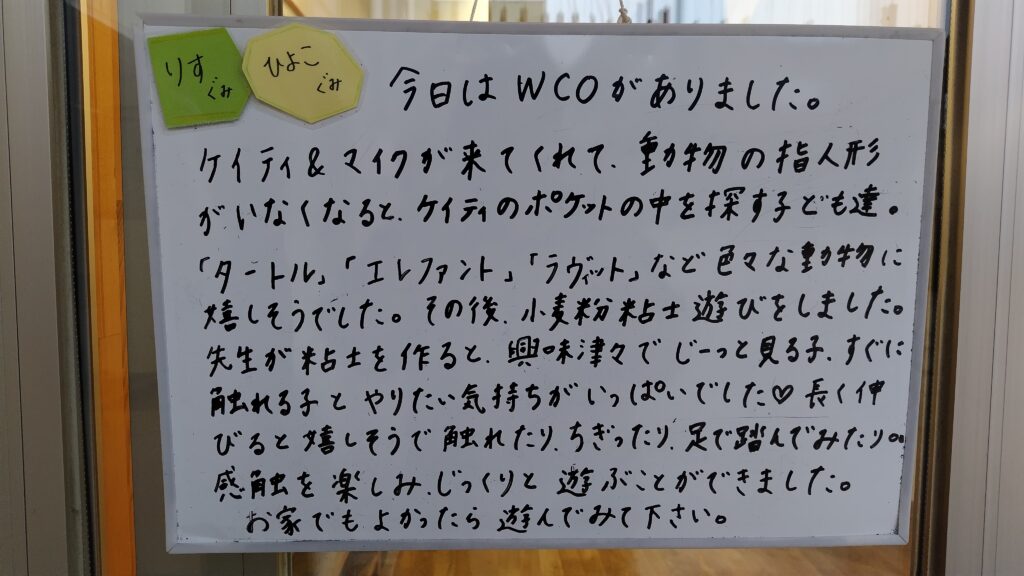 りす
ぐみ
ひよこ
ぐみ
今日はWCOがありました。
ケイティ&マイクが来てくれて、動物の指人形
がいなくなると、ケイティのポケットの中を探す子ども達。
「タートル」「エレファント」「ラヴィット」など色々な動物に
嬉しそうでした。その後、小麦粉粘土遊びをしました。
先生が粘土を作ると、興味津々でじーっと見る子、すぐに
触れる子とやりたい気持ちがいっぱいでした♡長く伸
びると嬉しそうで触れたり、ちぎったり、足で踏んでみたり。
感触を楽しみ、じっくりと遊ぶことができました。
お家でもよかったら遊んでみて下さい。